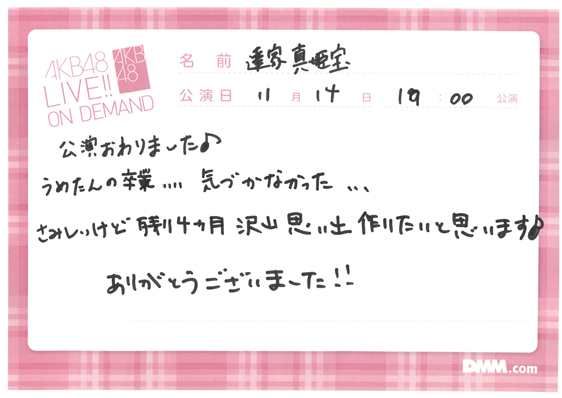 AKB48
LIVE!!
ON DEMAND
AKB
48
名前 達家真姫宝
公演日 11月14日 19:00 公演
公演おわりました♪
うめたんの卒業.... 気づかなかった...
さみしいけど 残り4ヵ月 沢山 思い出 作りたいと思います♪
ありがとうございました!!
DMM.com